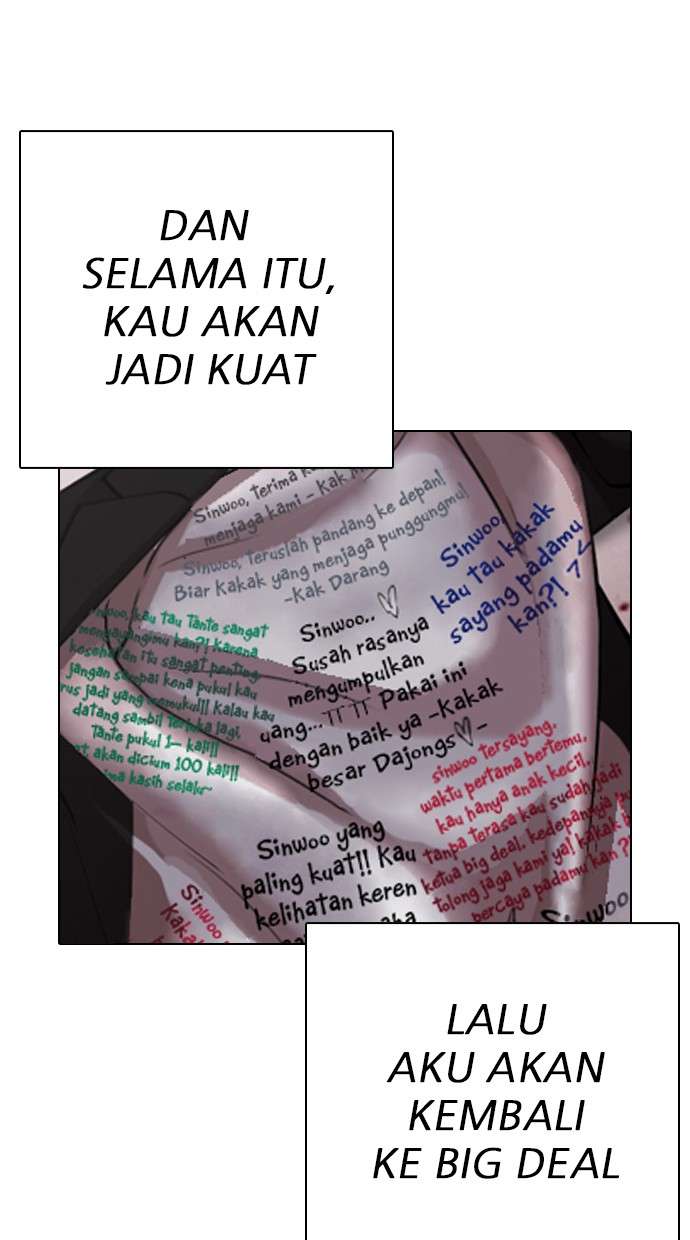 DAN
SELAMA ITU,
KAU AKAN
JADI KUAT
Sinwoo, terima
menjaga kami - Kak
Sinwoo, Teruslah pandang ke depan!
Biar Kakak yang menjaga punggungmu!
-Kak Darang
Sinwoo,
kau tau kakak
sayang padamu
kan?!
kau tau Tante sangat
menyayangimu kan?! Karena
kesehatan itu sangat penting
jangan sampai kena pukul kau
rus jadi yang memukul!! Kalau kau
datang sambil terluka lagi,
Tante pukul 1- kali!!
akan dicium 100 kali!!!
kasih selalu~
Sinwoo.. ♡
Susah rasanya
mengumpulkan
uang...ㅠㅠ Pakai ini
dengan baik ya -Kakak
besar Dajongs♡-
sinwoo tersayang.
waktu pertama bertemu,
kau hanya anak kecil.
tanpa terasa kau sudah jadi
ketua big deal. kedepannya
tolong jaga kami ya! kakak
percaya padamu kan
Sinwoo yang
paling kuat!! Kau
kelihatan keren
Sinwoo
Sinwoo
LALU
AKU AKAN
KEMBALI
KE BIG DEAL